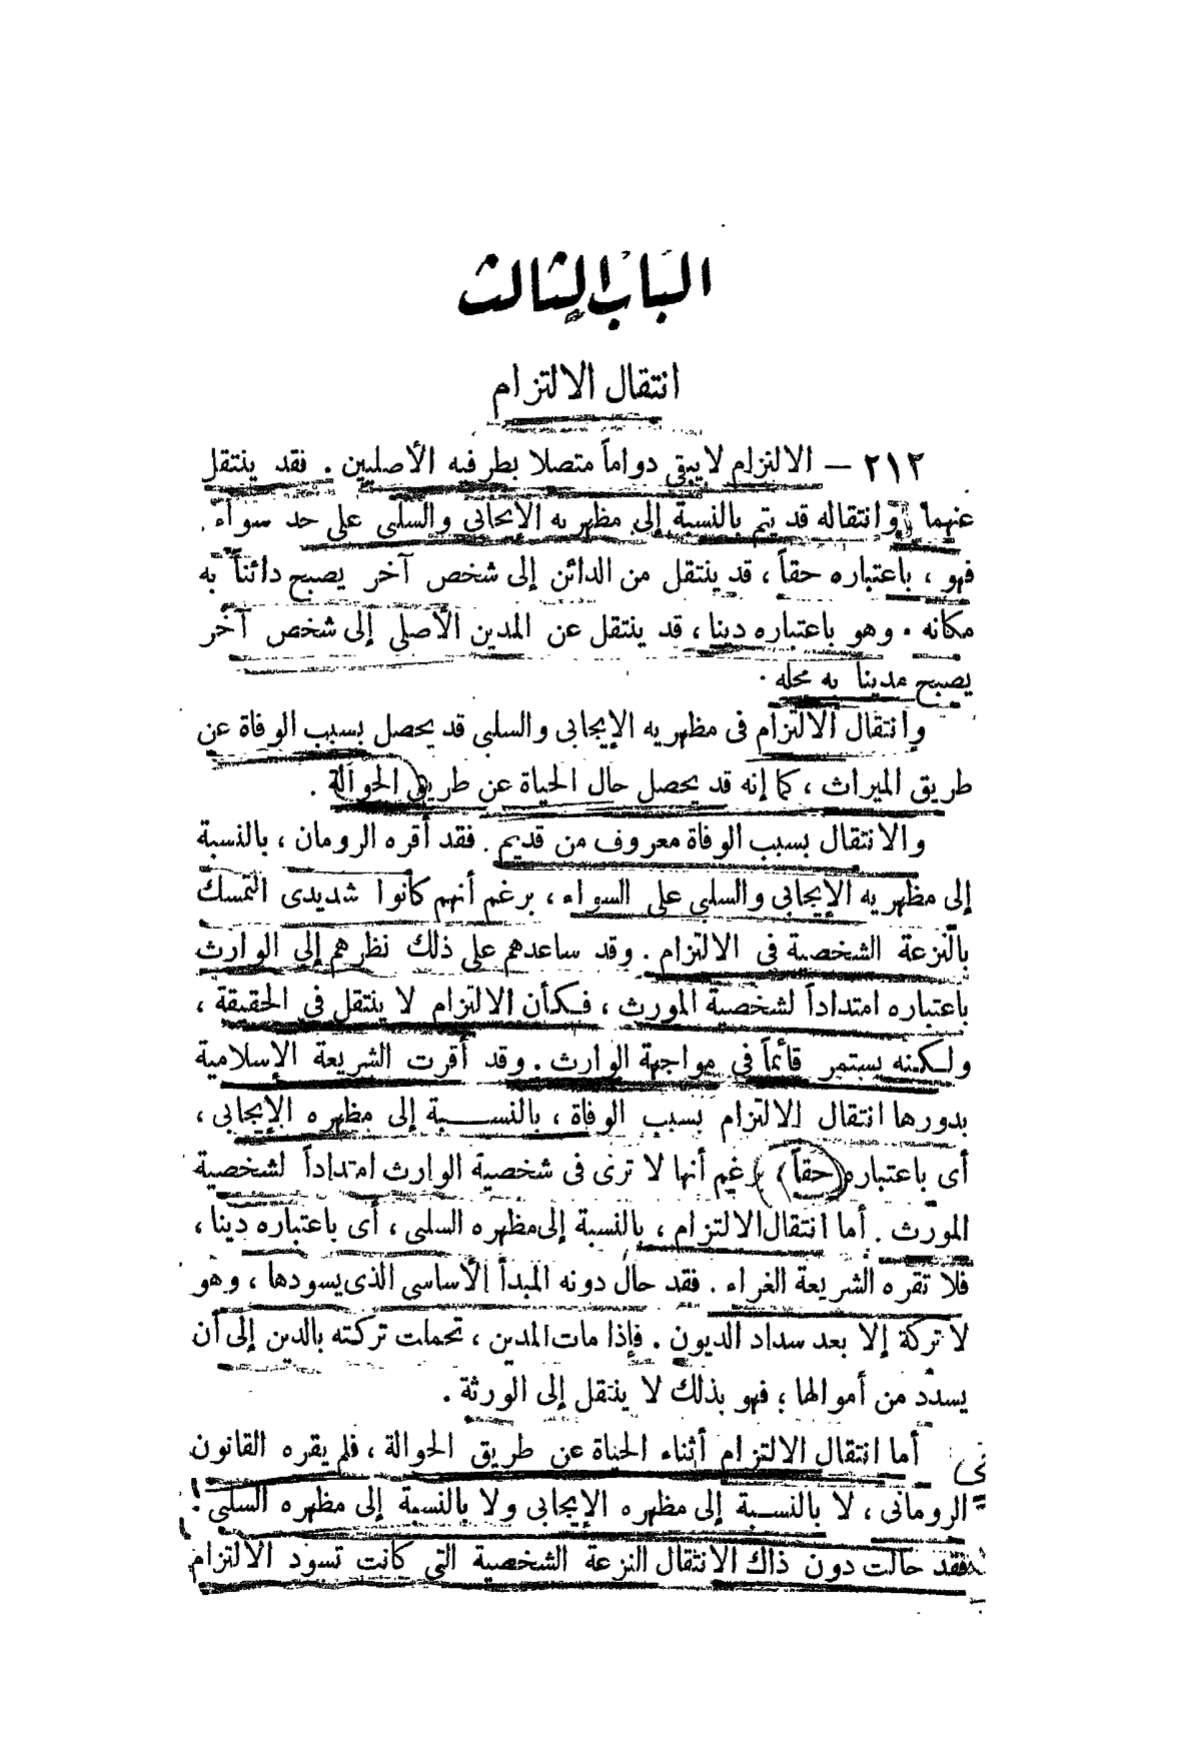 الباب الثالث
انتقال الالتزام
٢١٢ — الالتزام لا يبقى دواماً متصلا بطرفيه الأصليين . فقد ينتقل
عنهما . وانتقاله قد يتم بالنسبة إلى مظهريه الإيجابى والسلبى على حد سواء .
فهو ، باعتباره حقاً ، قد ينتقل من الدائن إلى شخص آخر يصبح دائناً به
مكانه . وهو باعتباره دينا ، قد ينتقل عن المدين الأصلى إلى شخص آخر
يصبح مدينا به محله .
وانتقال الالتزام فى مظهريه الإيجابى والسلبى قد يحصل بسبب الوفاة عن
طريق الميراث ، كما إنه قد يحصل حال الحياة عن طريق الحوالة .
والانتقال بسبب الوفاة معروف من قديم . فقد أقره الرومان ، بالنسبة
إلى مظهريه الإيجابى والسلبى على السواء ، برغم أنهم كانوا شديدى التمسك
بالنزعة الشخصية فى الالتزام . وقد ساعدهم على ذلك نظرهم إلى الوارث
باعتباره امتداداً لشخصية المورث ، فكأن الالتزام لا ينتقل فى الحقيقة ،
ولكنه يستمر قائماً فى مواجهة الوارث . وقد أقرت الشريعة الإسلامية
بدورها انتقال الالتزام بسبب الوفاة ، بالنسبة إلى مظهره الإيجابى ،
أى باعتباره (حقاً) رغم أنها لا ترى فى شخصية الوارث امتداداً لشخصية
المورث . أما انتقال الالتزام ، بالنسبة إلى مظهره السلبى ، أى باعتباره دينا ،
فلا تقره الشريعة الغراء . فقد حال دونه المبدأ الأساسى الذى يسودها ، وهو
لا تركة إلا بعد سداد الديون . فإذا مات المدين ، تحملت تركته بالدين إلى أن
يسدد من أموالها ؛ فهو بذلك لا ينتقل إلى الورثة .
أما انتقال الالتزام أثناء الحياة عن طريق الحوالة ، فلم يقره القانون
الرومانى ، لا بالنسبة إلى مظهره الإيجابى ولا بالنسبة إلى مظهره السلبى .
فقد حالت دون ذاك الانتقال النزعة الشخصية التى كانت تسود الالتزام